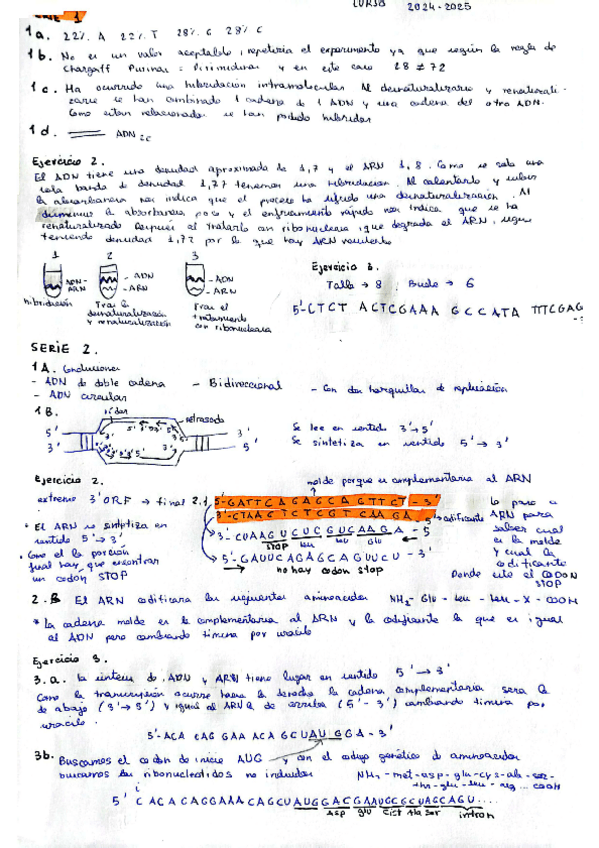 CURSO 2024-2025
SERIE 1
1a. 22% A 22% T 28% G 28% C
1b. No es un valor aceptable, repetiria el experimento ya que según la regla de
Chargaff Purinas = Pirimidinas y en este caso 28 ≠ 72
1c. Ha ocurrido una hibridación intramolecular. Al desnaturalizarse y renaturali-
zarse se han combinado 1 cadena de 1 ADN y una cadena del otro ADN.
Como estan relacionados se han podido hibridar
1d. ADN
Ejercicio 2.
El ADN tiene una densidad aproximada de 1,7 y el ARN 1,8. Como se solo una
sola banda de densidad 1,77 tenemos una hibridacion. Al calentarlo y subir
la absorbancia nos indica que el proceso ha sufrido una desnaturalización. Al
disminuir la absorbancia poco y el enfriamiento rápido nos indica que se ha
renaturalizado. Después al tratarlo con ribonucleasa, que degrada el ARN, sigue
teniendo densidad 1,72 por lo que hay ARN
1 2 3
ADN-
ARN
- ADN
- ARN
- ADN
- ARN
hibridación
Tras la
desnaturalización
y renaturalización
Tras el
tratamiento
con ribonucleasa
Ejercicio 3.
Tallo → 8 Bucle → 6
5'-CTCT ACTCGAAA GCCATA TTTCGAG
SERIE 2.
1A. Conclusiones
- ADN de doble cadena - Bidireccional - Con dos horquillas de replicación
- ADN circular
1B. líder retrasada
5' 3'
3' 5'
Se lee en sentido 3'→5'
Se sintetiza en sentido 5'→3'
Ejercicio 2. molde porque es complementaria al ARN
extremo 3'ORF → final 2.1
5'-GATTCAGAGCACTTCT-3'
3'-CTAAGTCTCGTGAAGA-5' codificante
3'-CUAAGUCUCGUGAAGA-5'
STOP leu leu Glu
5'-GAUUCAGAGCAGUUCU-3'
no hay codon stop
• El ARN se sintetiza en
sentido 5'→3'
• Como es la porción
final hay que encontrar
un codón STOP
lo paso a
ARN para
saber cual
es la molde
y cual la
codificante
Donde este el CODON
STOP
2.B El ARN codificara los siguientes aminoacidos NH₂- Glu - Leu - Leu - X - COOH
* La cadena molde es la complementaria al ARN y la codificante la que es igual
al ADN pero cambiando timina por uracilo
Ejercicio 3.
3.a. La sintesis de ADN y ARN tiene lugar en sentido 5'→3'
Como la transcripción ocurre hacia la derecha la cadena complementaria sera la
de abajo (3'→5') y igual al ARN la de arriba (5'-3') cambiando timina por
uracilo.
5'-ACA CAG GAA ACA GCU AUG GA-3'
3b. Buscamos el codon de inicio AUG y con el codigo genético de aminoacidos
buscamos los ribonucleotidos no incluidos NH₂-met-asp-glu-cys-ala-ser-
thr-glu-leu-arg... COOH
5' CACACAGGAAACAGCUAUGGACGAAUGCGCUAGCAGU....
Asp glu Cist Ala Ser intron